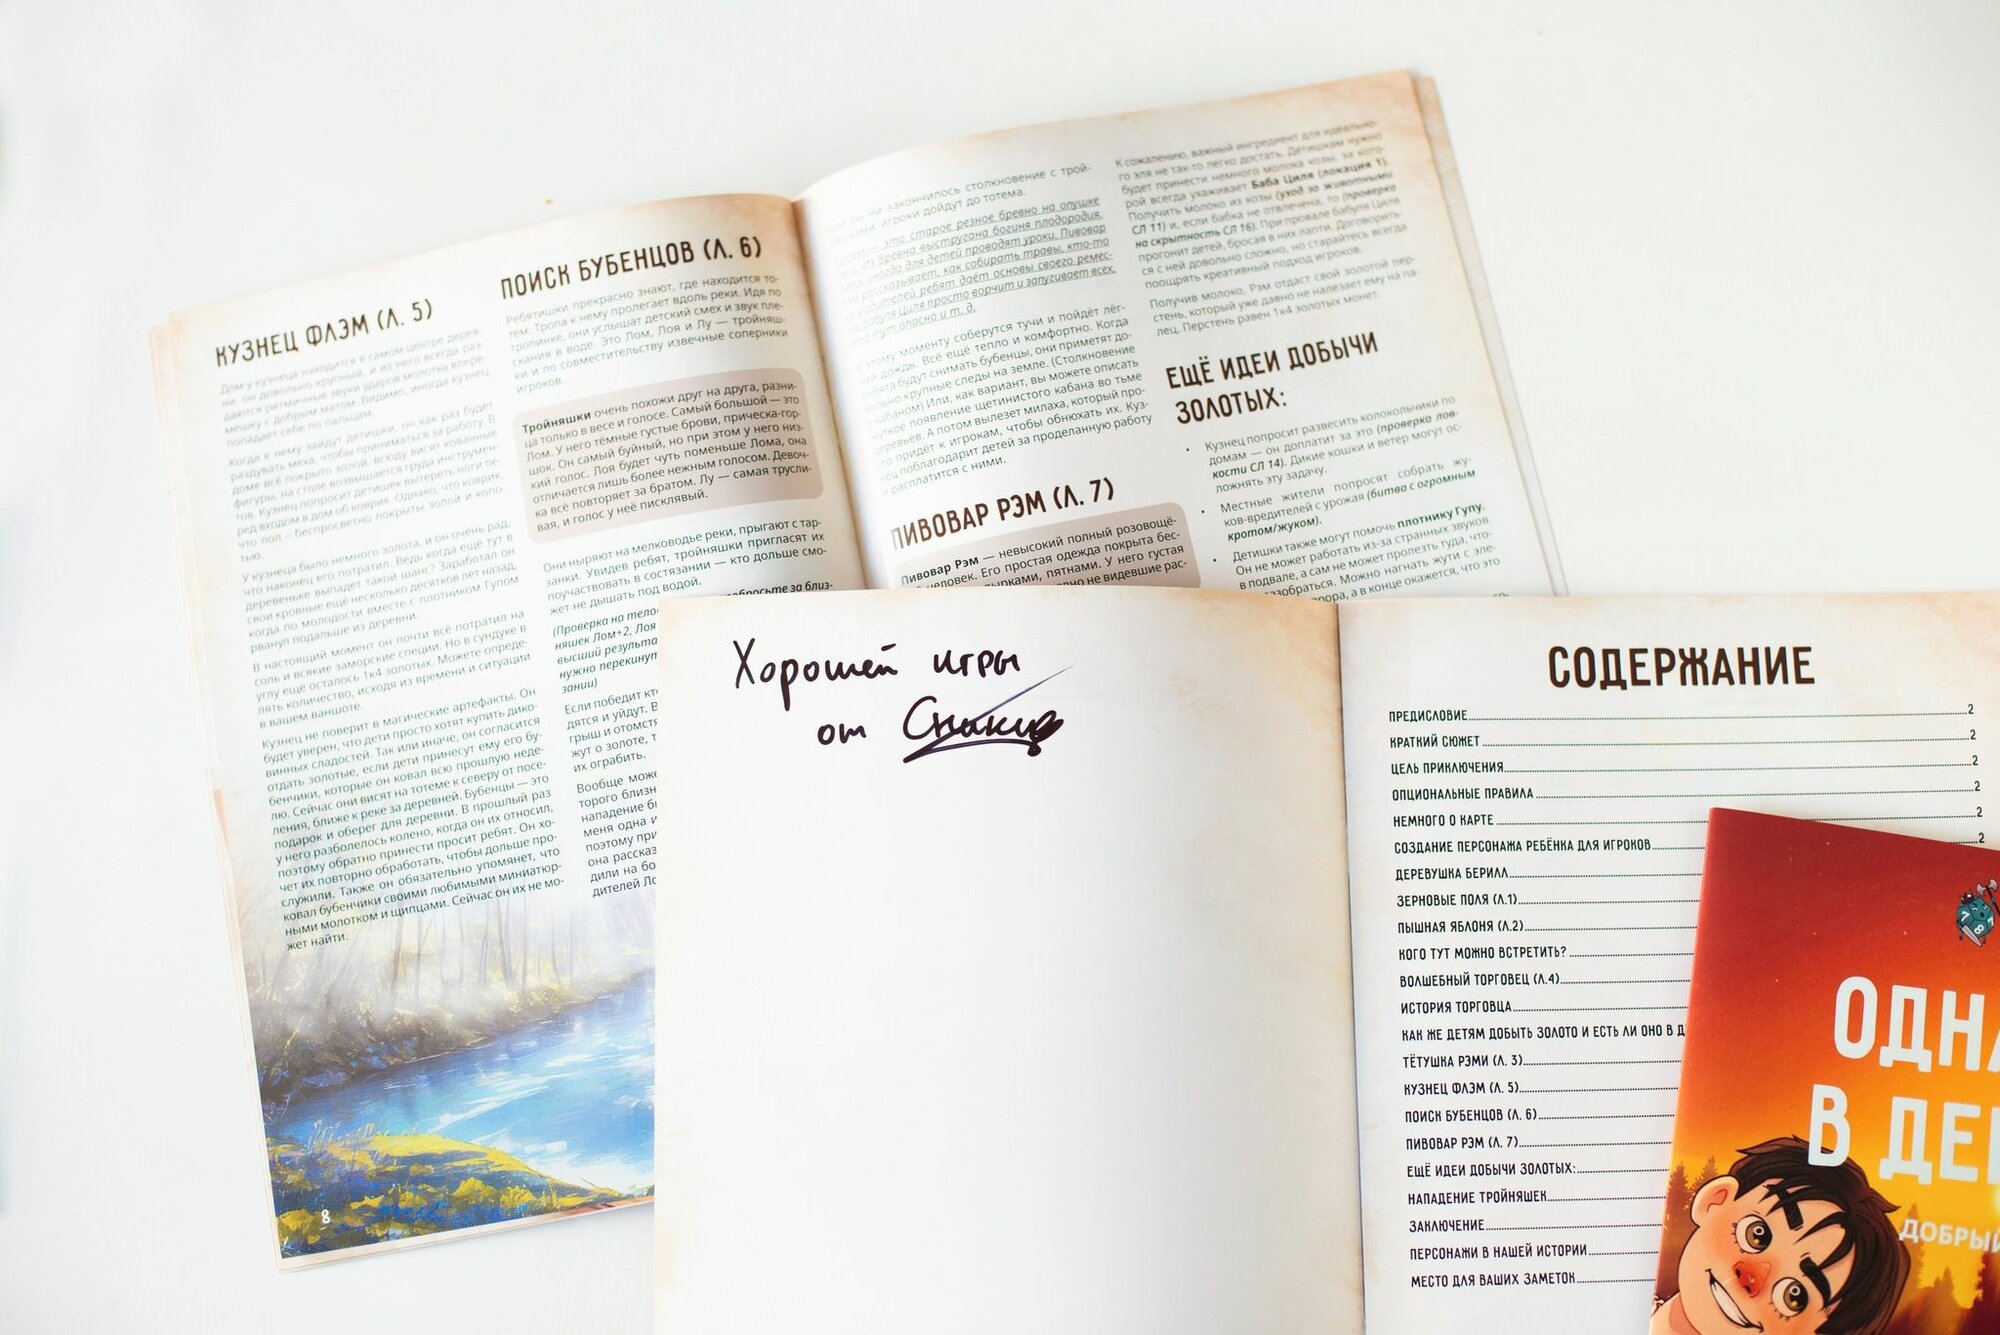 КУЗНЕЦ ФЛЭМ (Л. 5)
Дом у кузнеца находится в самом центре дерев-
ни, он довольно крупный, и из него всегда раз-
даются ритмичные звуки ударов молотка впере-
мешку с добрым матом. Видимо, иногда кузнец
попадает себе по пальцам.
Когда к нему зайдут детишки, он как раз будет
раздувать меха, чтобы приниматься за работу. В
доме всё покрыто золой, всюду висят кованные
фигуры, на столе возвышается груда инструмен-
тов. Кузнец попросит детишек вытереть ноги пе-
ред входом в дом об коврик. Однако, что коврик,
что пол – беспросветно покрыты золой и копо-
тью.
У кузнеца было немного золота, и он очень рад,
что наконец его потратил. Ведь когда ещё тут в
деревеньке выпадет такой шанс? Заработал он
свои кровные ещё несколько десятков лет назад,
когда по молодости вместе с плотником Гупом
рванул подальше из деревни.
В настоящий момент он почти всё потратил на
соль и всякие заморские специи. Но в сундуке в
углу ещё осталось 1к4 золотых. Можете опреде-
лять количество, исходя из времени и ситуации
в вашем ваншоте.
Кузнец не поверит в магические артефакты. Он
будет уверен, что дети просто хотят купить дико-
винных сладостей. Так или иначе, он согласится
отдать золотые, если дети принесут ему его бу-
бенчики, которые он ковал всю прошлую неде-
лю. Сейчас они висят на тотеме к северу от посе-
ления, ближе к реке за деревней. Бубенцы — это
подарок и оберег для деревни. В прошлый раз
у него разболелось колено, когда он их относил,
поэтому обратно принести просит ребят. Он хо-
чет их повторно обработать, чтобы дольше про-
служили. Также он обязательно упомянет, что
ковал бубенчики своими любимыми миниатюр-
ными молотком и щипцами. Сейчас он их не мо-
жет найти.
8
ПОИСК БУБЕНЦОВ (Л. 6)
Ребятишки прекрасно знают, где находится то-
тем. Тропа к нему пролегает вдоль реки. Идя по
тропинке, они услышат детский смех и звук пле-
скания в воде. Это Лом, Лоя и Лу — тройняш-
ки и по совместительству извечные соперники
игроков.
Тройняшки очень похожи друг на друга, разни-
ца только в весе и голосе. Самый большой — это
Лом. У него тёмные густые брови, прическа-гор-
шок. Он самый буйный, но при этом у него низ-
кий голос. Лоя будет чуть поменьше Лома, она
отличается лишь более нежным голосом. Девоч-
ка всё повторяет за братом. Лу — самая трусли-
вая, и голос у неё писклявый.
Они ныряют на мелководье реки, прыгают с тар-
занки. Увидев ребят, тройняшки пригласят их
поучаствовать в состязании — кто дольше смо-
жет не дышать под водой.
(Проверка на тело
бросьте за близ-
няшек Лом+2, Лоя
высший результа
нужно перекинут
зании)
Если победит кт
дятся и уйдут. В
грыш и отомстя
жут о золоте, т
их ограбить.
Вообще може
торого близн
нападение б
меня одна и
поэтому при
она расказ
дили на бо
дителей Ло
бы ни закончилось столкновение с трой-
игроки дойдут до тотема.
— это старое резное бревно на опушке
Из бревна выстругана богиня плодородия.
иногда для детей проводят уроки. Пивовар
рассказывает, как собирать травы, кто-то
родителей ребят даёт основы своего ремес-
Бабуля Циля просто ворчит и запугивает всех,
тут опасно и т. д.
этому моменту соберутся тучи и пойдёт лёг-
кий дождь. Всё ещё тепло и комфортно. Когда
ребята будут снимать бубенцы, они приметят до-
вольно крупные следы на земле. (Столкновение
с кабаном) Или, как вариант, вы можете описать
жуткое появление щетинистого кабана во тьме
деревьев. А потом вылезет милаха, который про-
сто придёт к игрокам, чтобы обнюхать их. Куз-
нец поблагодарит детей за проделанную работу
и расплатится с ними.
ПИВОВАР РЭМ (Л. 7)
Пивовар Рэм — невысокий полный розовощё-
человек. Его простая одежда покрыта бес-
дырками, пятнами. У него густая
не видевшие рас-
К сожалению, важный ингредиент для идеально-
го эля не так-то легко достать. Детишкам нужно
будет принести немного молока козы, за кото-
рой всегда ухаживает Баба Циля (локация 1).
Получить молоко из козы (уход за животными
СЛ 11) и, если бабка не отвлечена, то (проверка
на скрытность СЛ 16). При провале бабуля Циля
прогонит детей, бросая в них лапти. Договорить-
ся с ней довольно сложно, но старайтесь всегда
поощрять креативный подход игроков.
Получив молоко, Рэм отдаст свой золотой пер-
стень, который уже давно не налезает ему на па-
лец. Перстень равен 1к4 золотых монет.
ЕЩЁ ИДЕИ ДОБЫЧИ
ЗОЛОТЫХ:
• Кузнец попросит развесить колокольчики по
домам — он доплатит за это (проверка лов-
кости СЛ 14). Дикие кошки и ветер могут ос-
ложнять эту задачу.
• Местные жители попросят собрать жу-
ков-вредителей с урожая (битва с огромным
кротом/жуком).
• Детишки также могут помочь плотнику Гупу.
Он не может работать из-за странных звуков
в подвале, а сам не может пролезть туда, что-
разобраться. Можно нагнать жути с эле-
а в конце окажется, что это
Хорошей игры
от
СОДЕРЖАНИЕ
ПРЕДИСЛОВИЕ 2
КРАТКИЙ СЮЖЕТ 2
ЦЕЛЬ ПРИКЛЮЧЕНИЯ 2
ОПЦИОНАЛЬНЫЕ ПРАВИЛА 2
НЕМНОГО О КАРТЕ 2
СОЗДАНИЕ ПЕРСОНАЖА РЕБЁНКА ДЛЯ ИГРОКОВ 2
ДЕРЕВУШКА БЕРИЛЛ
ЗЕРНОВЫЕ ПОЛЯ (Л.1)
ПЫШНАЯ ЯБЛОНЯ (Л.2)
КОГО ТУТ МОЖНО ВСТРЕТИТЬ?
ВОЛШЕБНЫЙ ТОРГОВЕЦ (Л.4)
ИСТОРИЯ ТОРГОВЦА
КАК ЖЕ ДЕТЯМ ДОБЫТЬ ЗОЛОТО И ЕСТЬ ЛИ ОНО В Д
ТЁТУШКА РЭМИ (Л. 3)
КУЗНЕЦ ФЛЭМ (Л. 5)
ПОИСК БУБЕНЦОВ (Л. 6)
ПИВОВАР РЭМ (Л. 7)
ЕЩЁ ИДЕИ ДОБЫЧИ ЗОЛОТЫХ:
НАПАДЕНИЕ ТРОЙНЯШЕК
ЗАКЛЮЧЕНИЕ
ПЕРСОНАЖИ В НАШЕЙ ИСТОРИИ
МЕСТО ДЛЯ ВАШИХ ЗАМЕТОК
ОДНА
В ДЕ
ДОБРЫЙ